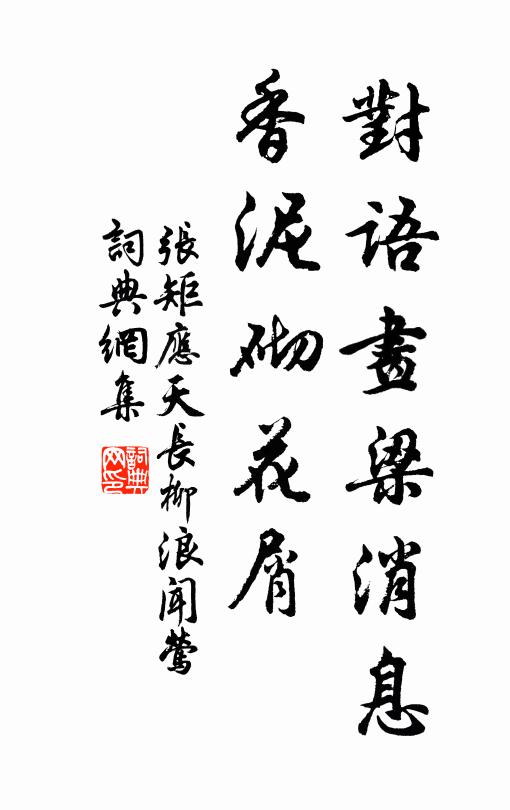 對語畫梁消息
香泥砌花屑
張矩應天長柳浪聞鶯
詞典網集
詞典网印